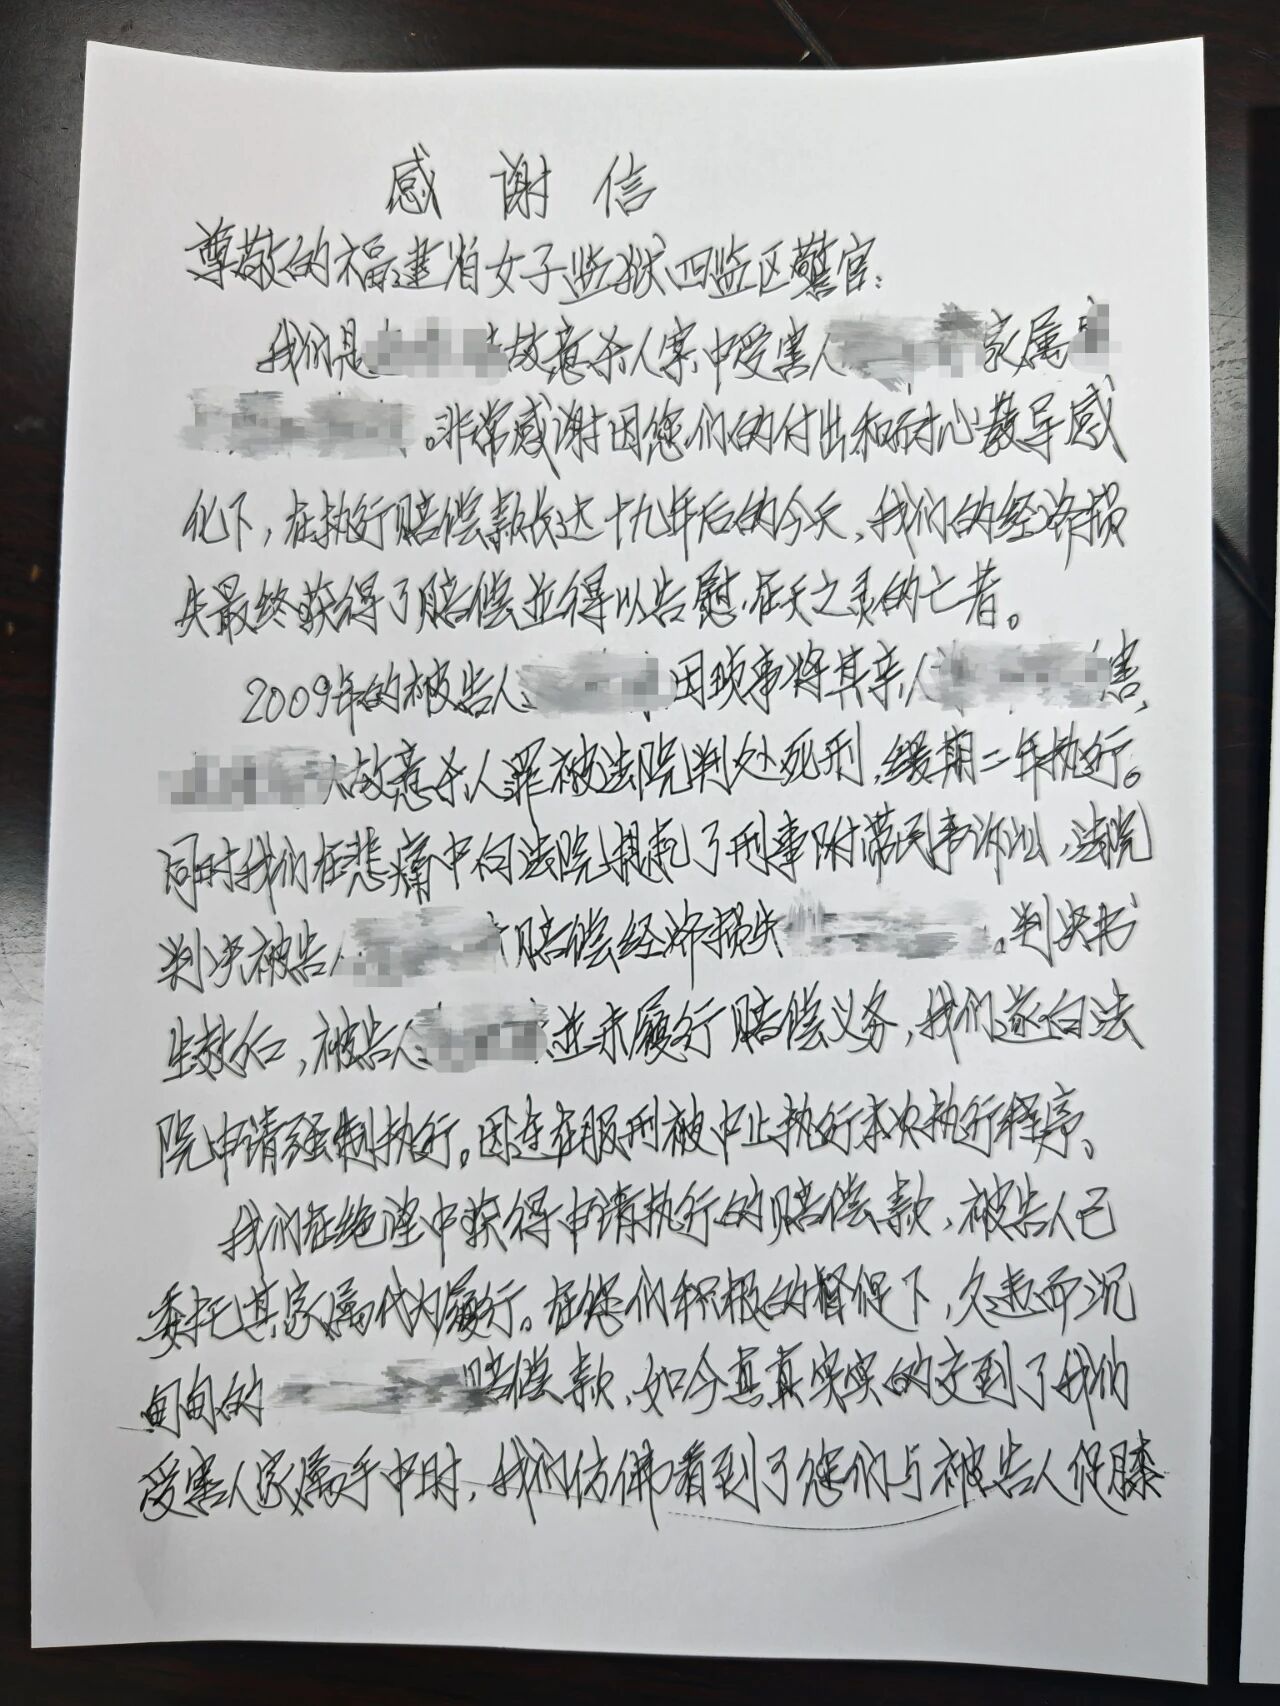 感谢信
尊敬的福建省女子监狱四监区警官：
我们是故意杀人案中受害人家属
。非常感谢因您们的付出和耐心教导感
化下，在执行赔偿款长达十九年后的今天，我们的经济损
失最终获得了赔偿并得以告慰在天之灵的亡者。
2009年的被告人因琐事将其亲人害，
故意杀人罪被法院判处死刑，缓期二年执行。
同时我们在悲痛中向法院提起了刑事附带民事诉讼，法院
判决被告人赔偿经济损失。判决书
生效后，被告人并未履行赔偿义务，我们遂向法
院申请强制执行。因连在服刑被中止执行本次执行程序、
我们在绝望中获得申请执行的赔偿款，被告人已
委托其家属代为履行。在您们积极的督促下，久违而沉
甸甸的赔偿款，如今真真实实的交到了我们
受害人家属手中时，我们仿佛看到了您们与被告人促膝